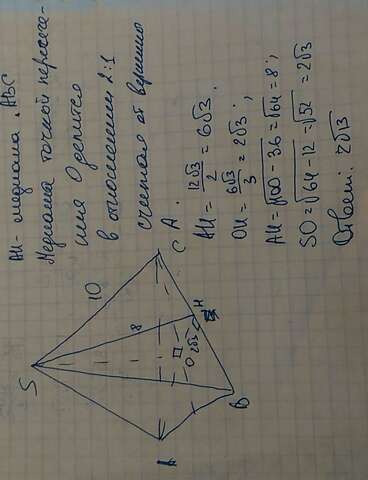 AH - медиана ABC
Медиана точкой пересече-
ния O делится
в отношении 2:1
считая от вершины
A.
AH = 12√3/2 = 6√3.
OH = 6√3/3 = 2√3;
AH = √100-36 = √64 = 8;
SO = √64-12 = √52 = 2√13
Ответ: 2√13
S
10
8
C
H
O
2√3
A
B